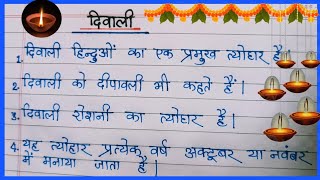 दिवाली
1. दिवाली हिन्दुओं का एक प्रमुख त्योहार है।
2. दिवाली को दीपावली भी कहते हैं।
3. दिवाली रोशनी का त्योहार है।
4. यह त्योहार प्रत्येक वर्ष अक्टूबर या नवंबर
में मनाया जाता है।